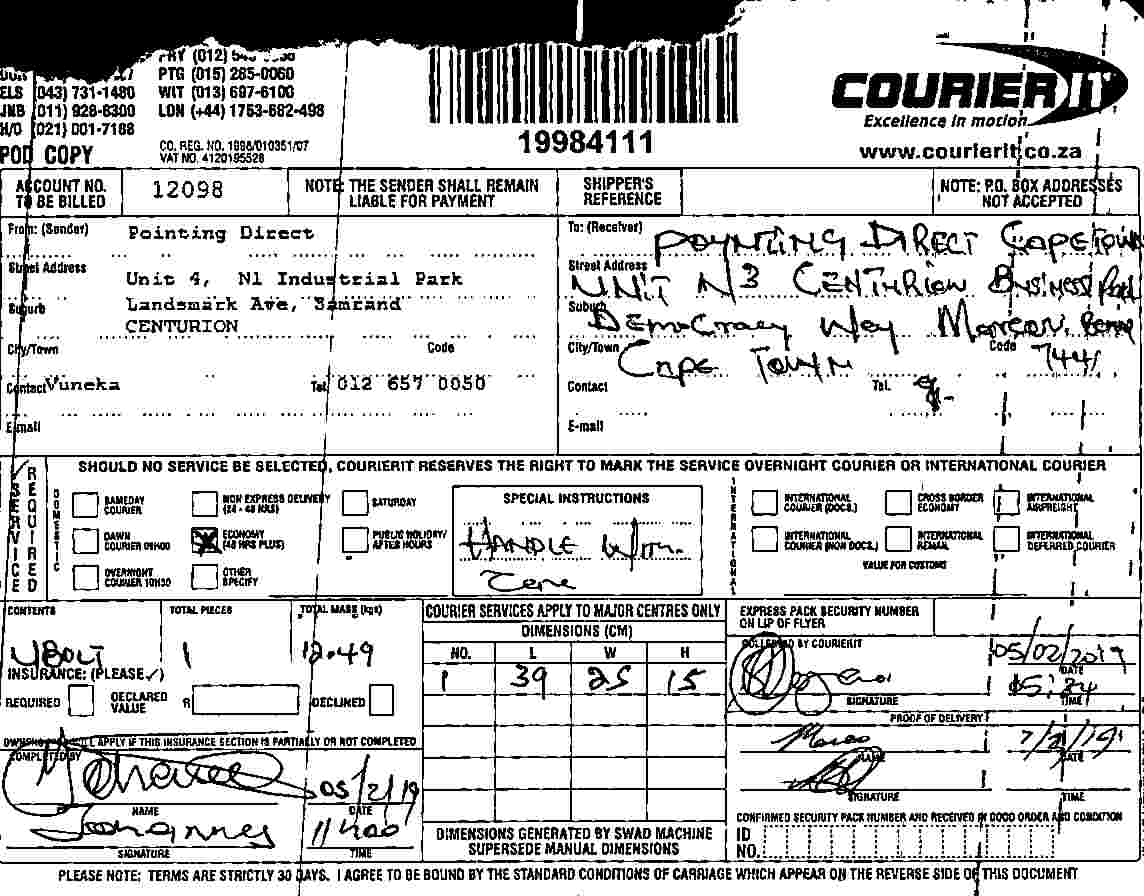 PTG (015) 265-0060
ELS (043) 731-1480 WIT (013) 697-6100
JNB (011) 928-6300 LDN (+44) 1753-682-498
H/O (021) 001-7188
19984111
COURIER IT
Excellence in motion
www.courierit.co.za
POD COPY
CO. REG. NO. 1998/010351/07
VAT NO. 4120195528
ACCOUNT NO. TO BE BILLED
12098
NOTE: THE SENDER SHALL REMAIN LIABLE FOR PAYMENT
SHIPPER'S REFERENCE
NOTE: P.O. BOX ADDRESSES NOT ACCEPTED
From: (Sender) Pointing Direct
Street Address Unit 4, N1 Industrial Park
Suburb Landsmark Ave, Samrand
CENTURION
City/Town Code
Contact Vuneka Tel. 012 657 0050
E-mail
To: (Receiver) POYNTING DIRECT CAPE TOWN
Street Address UNIT N3 CENTURION BUSINESS
Suburb DEMOCRACY WAY
City/Town CAPE TOWN Code 7441
Contact Tel.
E-mail
SERVICE REQUIRED
SHOULD NO SERVICE BE SELECTED, COURIERIT RESERVES THE RIGHT TO MARK THE SERVICE OVERNIGHT COURIER OR INTERNATIONAL COURIER
DOMESTIC
SAMEDAY COURIER
NON EXPRESS DELIVERY (24 - 48 HRS)
SATURDAY
DAWN COURIER 09H00
ECONOMY (48 HRS PLUS)
PUBLIC HOLIDAY/ AFTER HOURS
OVERNIGHT COURIER 10H30
OTHER SPECIFY
SPECIAL INSTRUCTIONS
HANDLE With
Care
INTERNATIONAL
INTERNATIONAL COURIER (DOCS.)
CROSS BORDER ECONOMY
INTERNATIONAL AIRFREIGHT
INTERNATIONAL COURIER (NON DOCS.)
INTERNATIONAL REMAIL
INTERNATIONAL DEFERRED COURIER
VALUE FOR CUSTOMS
CONTENTS
UBOLT
TOTAL PIECES
1
TOTAL MASS (kgs)
12.49
INSURANCE: (PLEASE ✓)
REQUIRED DECLARED VALUE R DECLINED
APPLY IF THIS INSURANCE SECTION IS PARTIALLY OR NOT COMPLETED
COMPLETED BY
05/2/19
NAME DATE
Johannes 11h00
SIGNATURE TIME
COURIER SERVICES APPLY TO MAJOR CENTRES ONLY
DIMENSIONS (CM)
NO. L W H
1 39 25 15
DIMENSIONS GENERATED BY SWAD MACHINE SUPERSEDE MANUAL DIMENSIONS
EXPRESS PACK SECURITY NUMBER ON LIP OF FLYER
COLLECTED BY COURIERIT
05/02/2019
DATE
SIGNATURE
TIME
PROOF OF DELIVERY
7/2/19
NAME DATE
SIGNATURE TIME
CONFIRMED SECURITY PACK NUMBER AND RECEIVED IN GOOD ORDER AND CONDITION
ID NO.
PLEASE NOTE: TERMS ARE STRICTLY 30 DAYS. I AGREE TO BE BOUND BY THE STANDARD CONDITIONS OF CARRIAGE WHICH APPEAR ON THE REVERSE SIDE OF THIS DOCUMENT